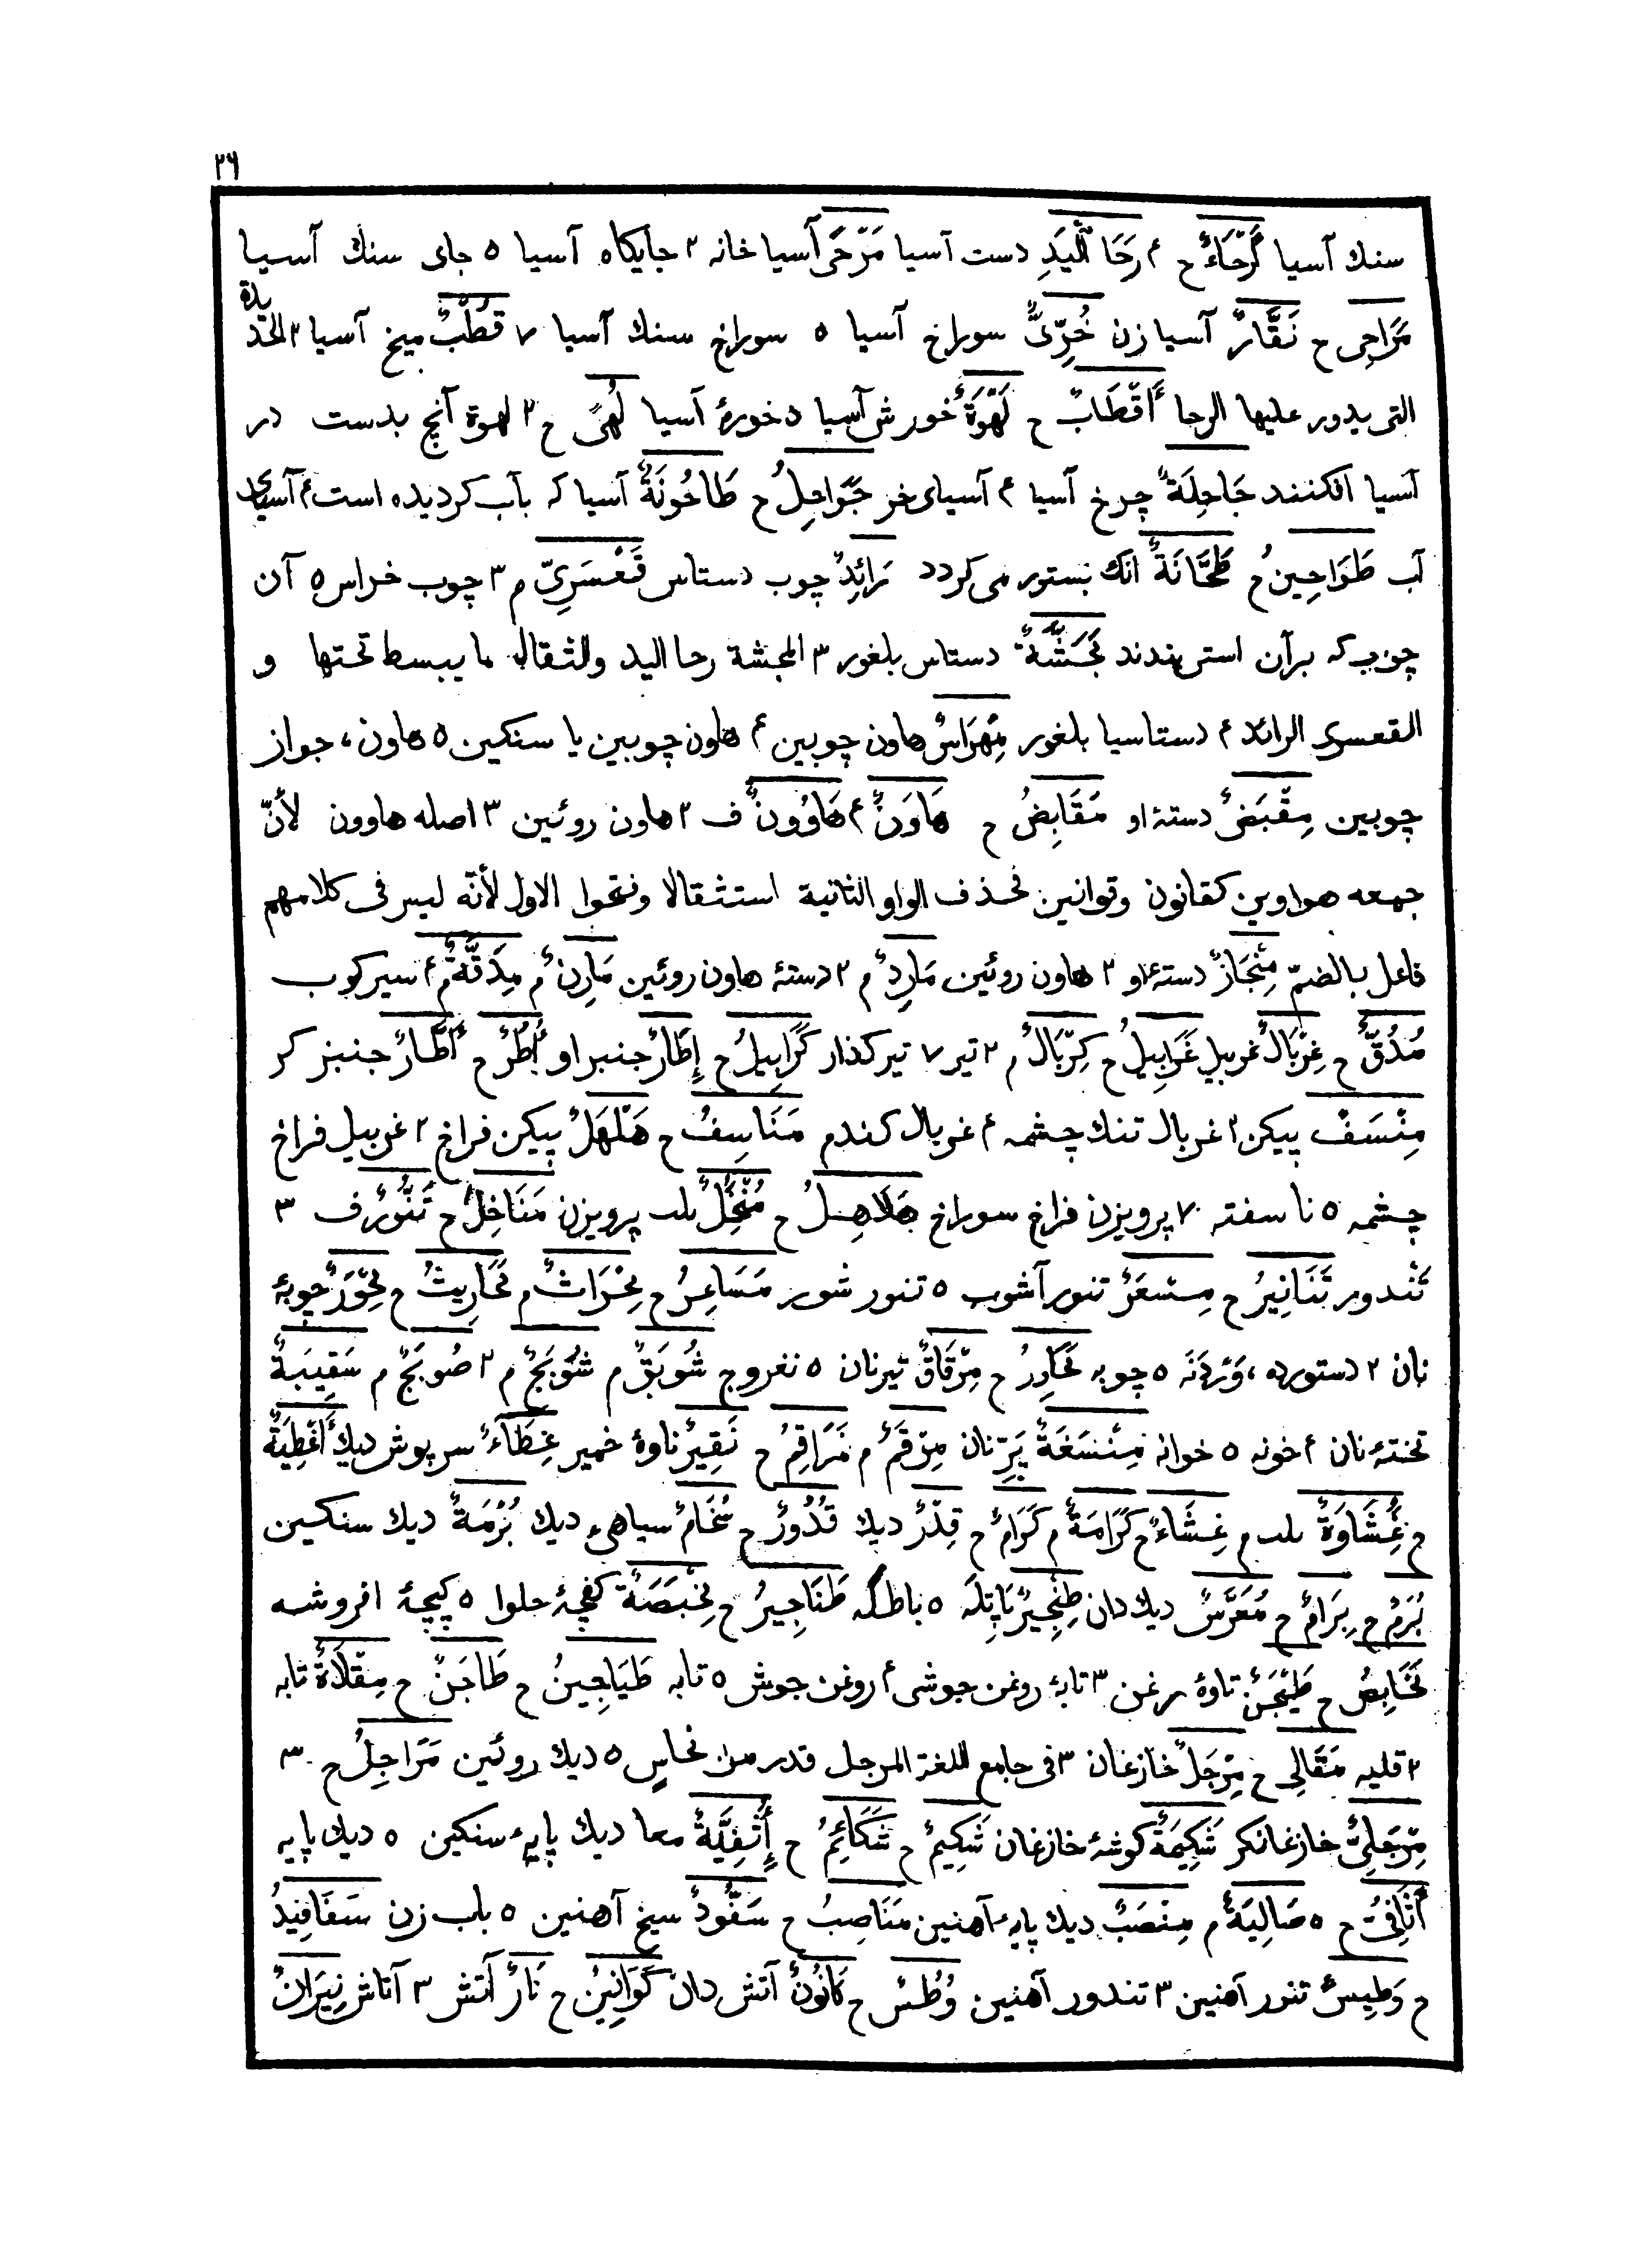 ٢٦
سنك آسيا أَرْحَاءٌ ح ۴ رَحَا الْيَدِ دست آسيا مَرْحًى آسيا خانه ٢ جايكاه آسيا ٥ جاى سنك آسيا
مَرَاحِى ح نَقَّارٌ آسيا زن خُرِّىٌّ سوراخ آسيا ٥ سوراخ سنك آسيا ٧ قُطْبٌ ميخ آسيا ٣ الحديدة
التى يدور عليها الرحا أَقْطَابٌ ح لَهْوَةٌ خورش آسيا ٥ خورۀ آسيا لُهًى ح ٢ لهوة آنچ بدست در
آسيا افكنند جَاحِلَةٌ چرخ آسيا ۴ آسياى خر جَوَاحِلُ ح طَاحُونَةٌ آسيا كه بآب كرديده است ۴ آسياى
آب طَوَاحِينُ ح طَحَّانَةٌ انك بستور مى كردد رَائِدٌ چوب دستاس قَعْسَرِىٌّ م ٣ چوب خراس ٥ آن
چوب كه برآن استر بندند مِجَشَّةٌ دستاس بلغور ٣ المجشة رحا اليد والثقال ما يبسط تحتها و
القعسرى الرائد ۴ دستاسيا بلغور مِهْرَاسٌ هاون چوبين ۴ هاون چوبين يا سنكين ٥ هاون، جواز
چوبين مِقْبَضٌ دستۀ او مَقَابِضُ ح هَاوَنٌ ۴ هَاوُونٌ ف ٢ هاون روئين ٣ اصله هاوون لأنّ
جمعه هواوين كقانون وقوانين فحذف الواو الثانية استثقالا وفتحوا الاول لأنّه ليس فى كلامهم
فاعل بالضمّ مِنْجَازٌ دستۀ او ٢ هاون روئين مَارِدٌ م ٢ دستۀ هاون روئين مَارِنٌ م مِدَقَّةٌ م ۴ سير كوب
مُدُقٌّ ح غِرْبَالٌ غربيل غَرَابِيلُ ح كِرْبَالٌ م ٢ تير ٧ تير كذار كَرَابِيلُ ح إِطَارٌ جنبر او أُطُرٌ ح أَطَّارٌ جنبز كر
مِنْسَفٌ پيكن ٢ غربال تنك چشمه ۴ غربال كندم مَنَاسِفُ ح هَلْهَلٌ پيكن فراخ ٢ غربيل فراخ
چشمه ٥ نا سفته ٧ پرويزن فراخ سوراخ هَلَاهِلُ ح مُنْخُلٌ پرويزن مَنَاخِلُ ح تَنُّورٌ ف ٣
تندور تَنَانِيرُ ح مِسْعَرٌ تنور آشوب ٥ تنور شور مَسَاعِرُ ح مِحْرَاثٌ م مَحَارِيثُ ح مِحْوَرٌ چوبۀ
نان ٢ دستورده، وَرْدَنَه ٥ چوبه مَحَاوِرُ ح مِرْقَاقٌ تيرنان ٥ نغروج شُوبَقٌ م شَوْبَجٌ م ٢ صُوبَجٌ م سَقِيبَةٌ
تختۀ نان ۴ خونه ٥ خوانه مِنْسَغَةٌ پَرِّ نان مِرْقَمٌ م مَرَاقِمُ ح نَقِيرٌ ناوۀ خمير غِطَآءٌ سر پوش ديك أَغْطِيَةٌ
ح غِشَاوَةٌ م غِشَاءٌ ح كَرَامَةٌ م كَرَامٌ ح قِدْرٌ ديك قُدُورٌ ح سُخَامٌ سياهىء ديك بُرْمَةٌ ديك سنكين
بُرَمٌ ح بِرَامٌ ح مُعَرَّسٌ ديك دان طِنْجِيرٌ پَاتِلَه ٥ طَنَاجِيرُ ح مِخْبَصَةٌ كفچۀ حلوا ٥ كپچۀ افروشه
مَخَابِصُ ح طَيْجَنٌ تاوۀ رغن ٣ تابۀ روغن جوشى ۴ روغن جوش ٥ تابه طَيَاجِينُ ح طَاجَنٌ ح مِقْلَاةٌ تابه
٢ قليه مَقَالِى ح مِرْجَلٌ خازغان ٣ فى جامع اللغة المرجل قدر من نحاسٍ ٥ ديك روئين مَرَاجِلُ ح ٣
مِرْجَلِىٌّ خازغانكر شَكِيمَةٌ كوشۀ خازغان شَكِيمٌ ح شَكَائِمُ ح أُثْفِيَّةٌ معا ديك پايهٔ سنكين ٥ ديك پايه
أَثَافِىُّ ح ٥ صَالِيَةٌ م مِنْصَبٌ ديك پايهٔ آهنين مَنَاصِبُ ح سَفُّودٌ سيخ آهنين ٥ باب زن سَفَافِيدُ
ح وَطِيسٌ تنور آهنين ٣ تندور آهنين وُطُسٌ ح كَانُونٌ آتش دان كَوَانِينُ ح نَارٌ آتش ٣ آتاش نِيرَانٌ